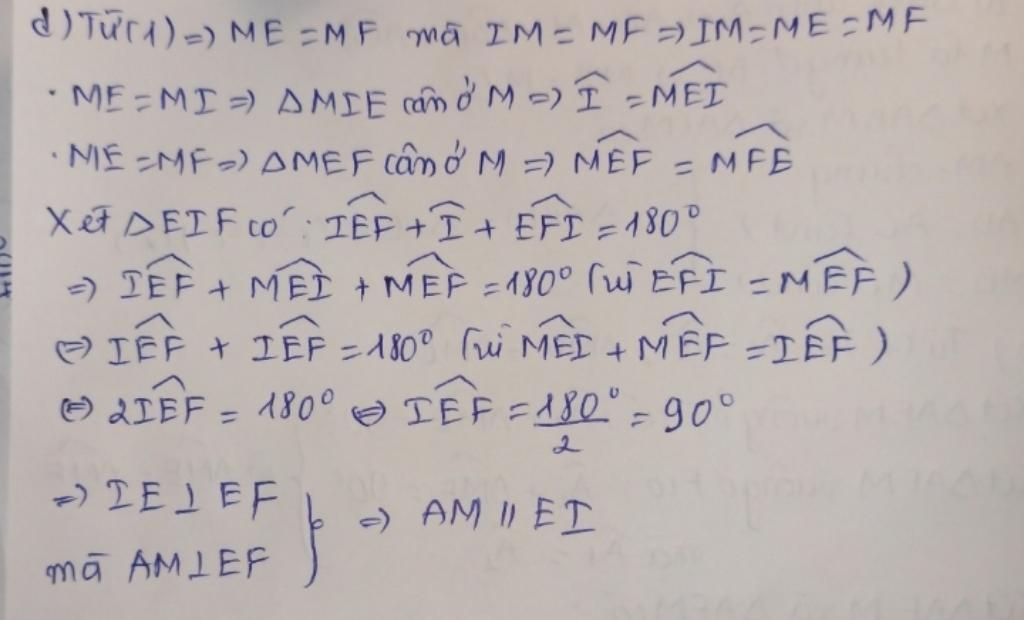 d) Từ (1) => ME = MF mã IM = MF => IM = ME = MF
· ME = MI => ΔMIE cân ở M => Î = M̂EI
· ME = MF => ΔMEF cân ở M => M̂EF = M̂FE
Xét ΔEIF có: IÊF + Î + EF̂I = 180°
=> IÊF + MÊI + MÊF = 180° (vì EF̂I = MÊF)
<=> IÊF + IÊF = 180° (vì MÊI + MÊF = IÊF)
<=> 2IÊF = 180° <=> IÊF = 180°/2 = 90°
=> IE ⊥ EF } => AM // EI
mã AM ⊥ EF